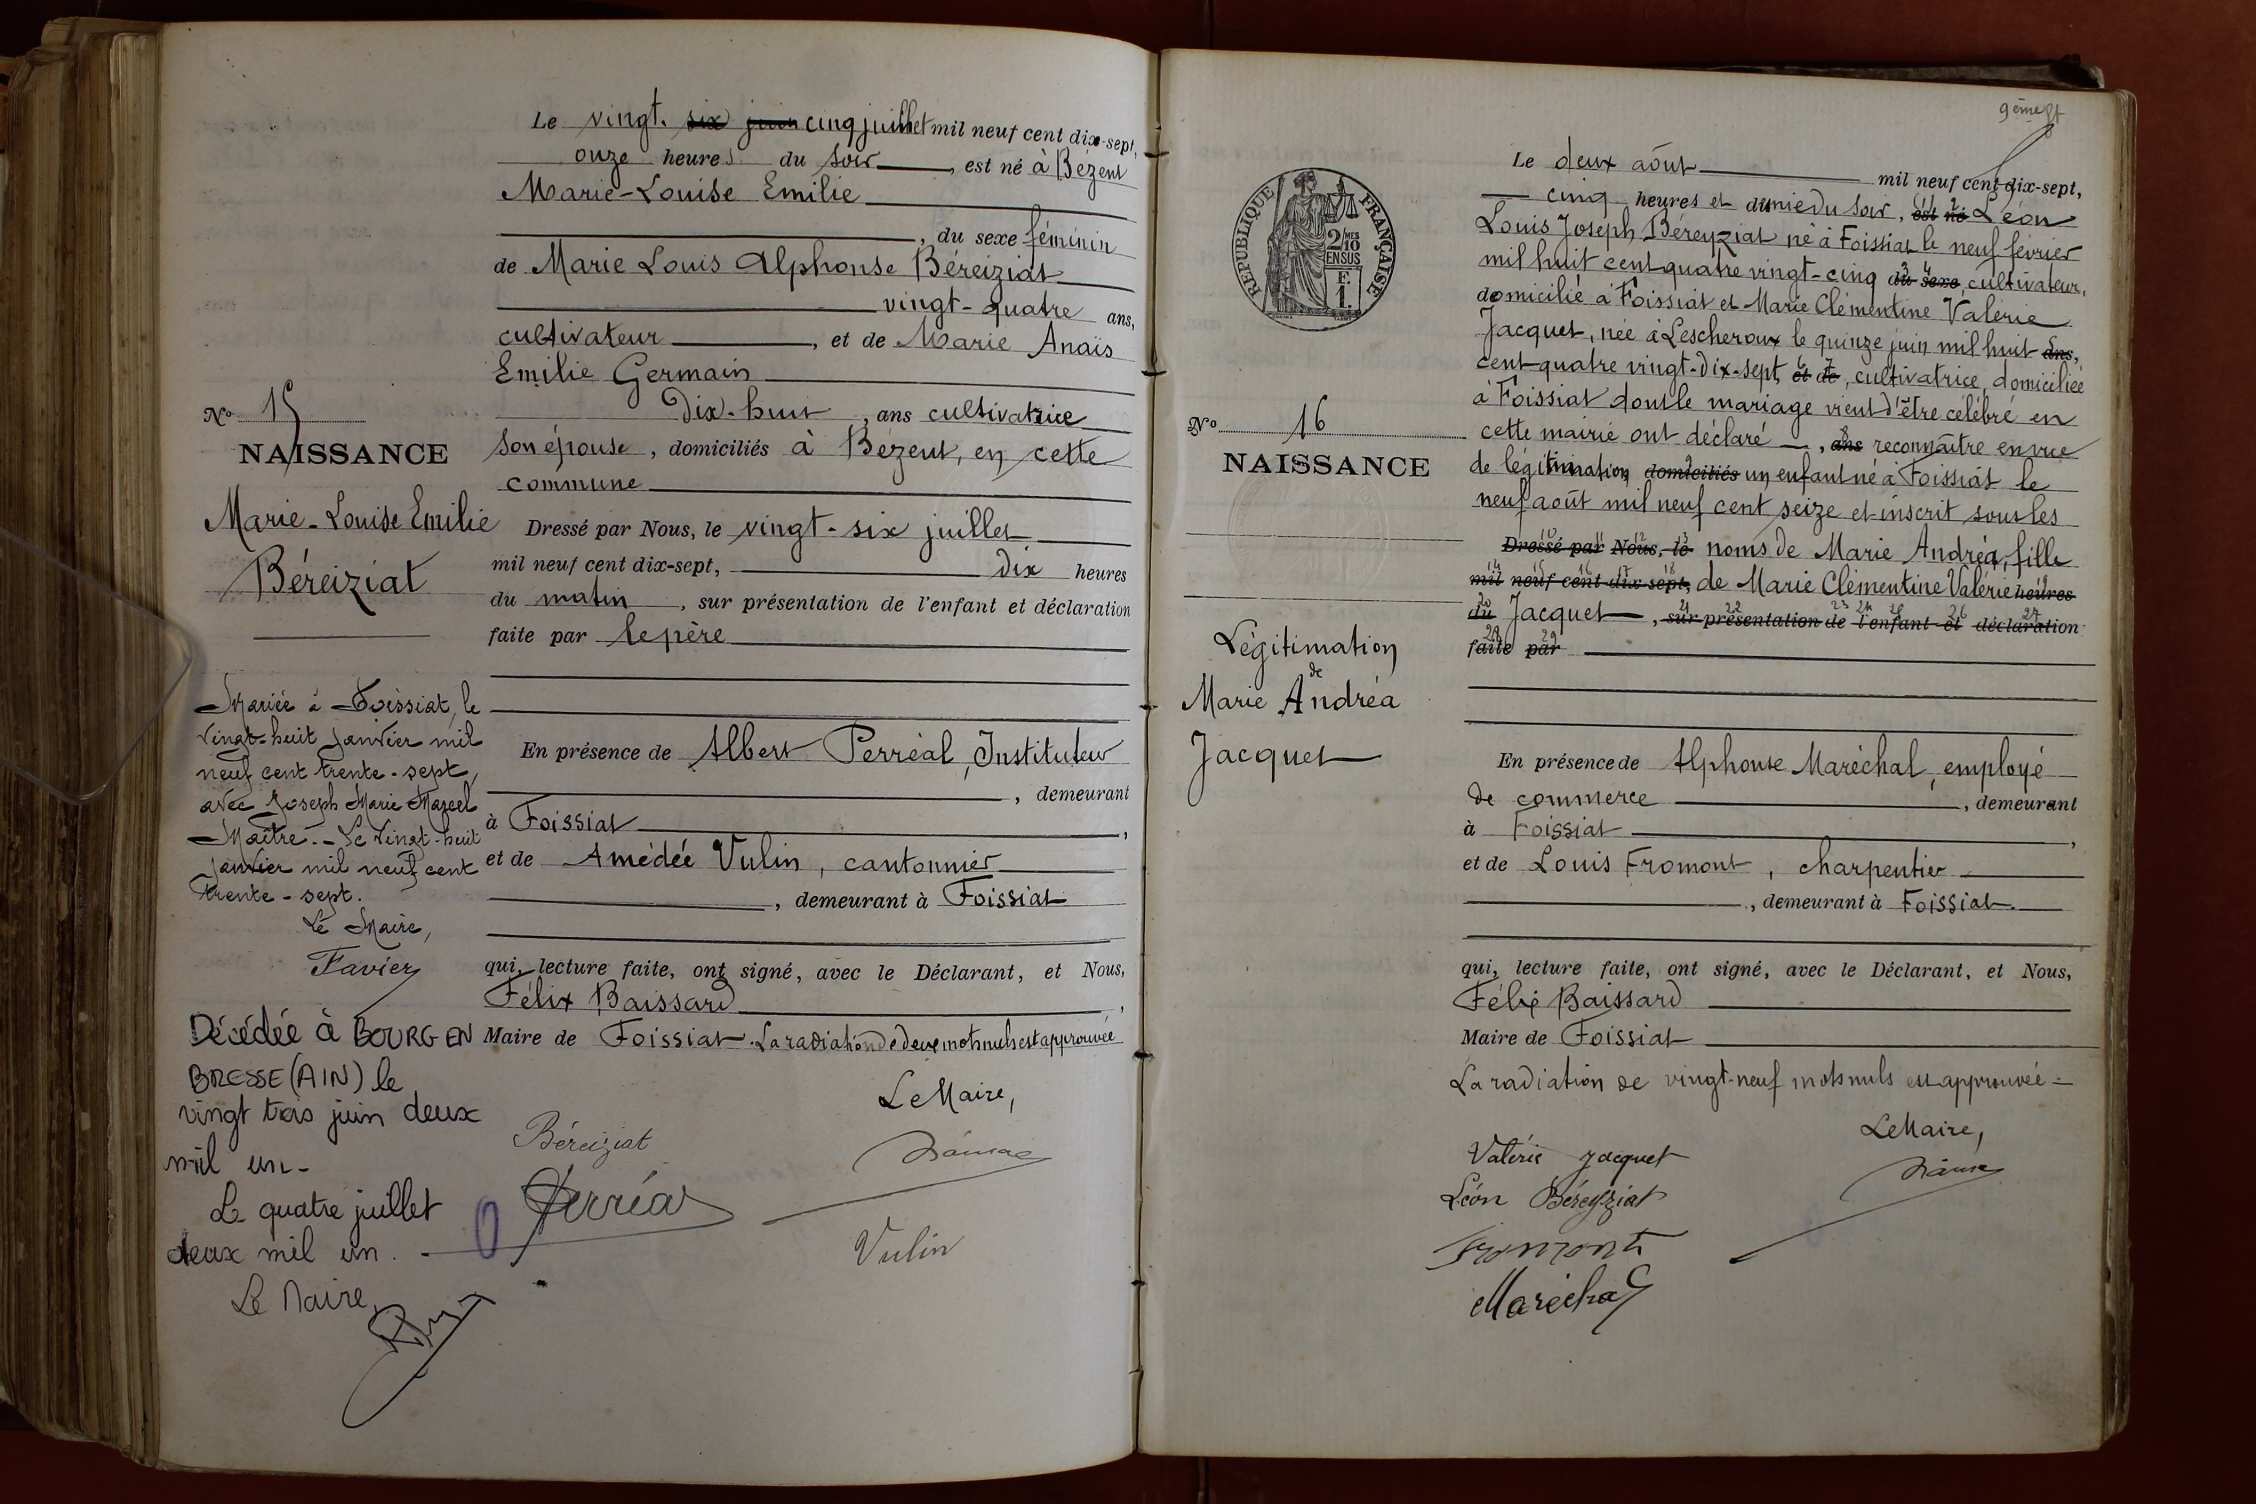 Le vingt-six juin cinq juillet mil neuf cent dix-sept,
onze heures du soir, est né à Bézent
Marie-Louise Emilie
, du sexe féminin
de Marie Louis Alphonse Béreiziat
vingt-quatre ans,
cultivateur, et de Marie Anaïs
Emilie Germain
Dix-huit, ans cultivatrice
son épouse, domiciliés à Bézent, en cette
commune
No 15
NAISSANCE
Marie-Louise Emilie
Béreiziat
Dressé par Nous, le vingt-six juillet
mil neuf cent dix-sept, dix heures
du matin, sur présentation de l'enfant et déclaration
faite par le père
Mariée à Foissiat, le
vingt-huit janvier mil
neuf cent trente-sept,
avec Joseph Marie Marcel
Maître.- Le vingt-huit
janvier mil neuf cent
trente-sept.
Le Maire,
Favier
En présence de Albert Perréal, Instituteur
, demeurant
à Foissiat,
et de Amédée Vulin, cantonnier
, demeurant à Foissiat
qui, lecture faite, ont signé, avec le Déclarant, et Nous,
Félix Baissard,
Maire de Foissiat. La radiation de deux mots nuls est approuvée
Décédée à BOURG EN
BRESSE (AIN) le
vingt trois juin deux
mil un-
Le quatre juillet
deux mil un.-
Le Maire,
Le Maire,
Béreiziat
Perréal
Vulin
9ème ft
REPUBLIQUE FRANÇAISE
2/10MES
EN SUS
F.
1.
Le deux août mil neuf cent dix-sept,
cinq heures et demie du soir, est né Léon
Louis Joseph Béreyziat né à Foissiat le neuf février
mil huit cent quatre vingt-cinq du sexe, cultivateur,
domicilié à Foissiat et Marie Clémentine Valérie
Jacquet, née à Lescheroux le quinze juin mil huit ans,
cent quatre vingt-dix-sept, et de, cultivatrice, domiciliée
à Foissiat dont le mariage vient d'être célébré en
cette mairie ont déclaré, ans reconnaître en vue
de légitimation domiciliés un enfant né à Foissiat le
neuf août mil neuf cent seize et inscrit sous les
Dressé par Nous, le noms de Marie Andréa, fille
mil neuf cent dix-sept, de Marie Clémentine Valérie heures
du Jacquet, sur présentation de l'enfant et déclaration
faite par
No 16
NAISSANCE
Légitimation
de
Marie Andréa
Jacquet
En présence de Alphonse Maréchal, employé
de commerce, demeurant
à Foissiat,
et de Louis Fromont, charpentier
, demeurant à Foissiat.
qui, lecture faite, ont signé, avec le Déclarant, et Nous,
Félix Baissard
Maire de Foissiat
La radiation de vingt-neuf mots nuls est approuvée =
Le Maire,
Valérie Jacquet
Léon Béreyziat
Fromont
Maréchal